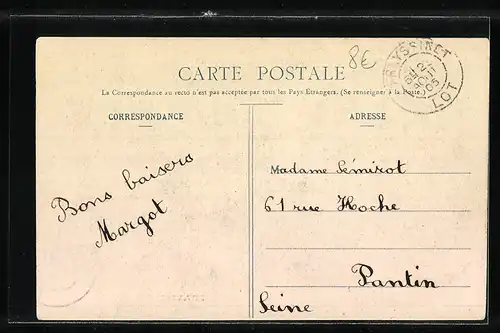 8€
FRAYSSINET
LOT
CARTE POSTALE
La Correspondance au recto n'est pas acceptée par tous les Pays Etrangers. (Se renseigner à la Poste.)
CORRESPONDANCE
ADRESSE
Bons baisers
Margot
Madame Sémirot
61 rue Hoche
Pantin
Seine